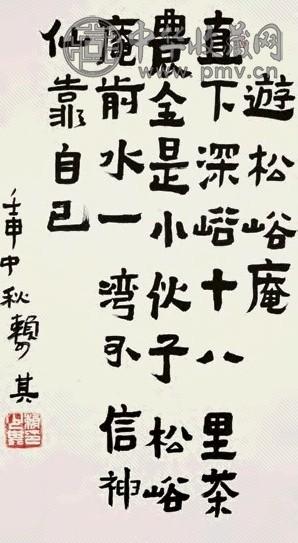 中华收藏网
www.pmv.cn
遊松峪庵
直下深峪十八里茶
農全是小伙子松峪
庵前水一湾不信神
仙靠自己
壬申中秋賴少其